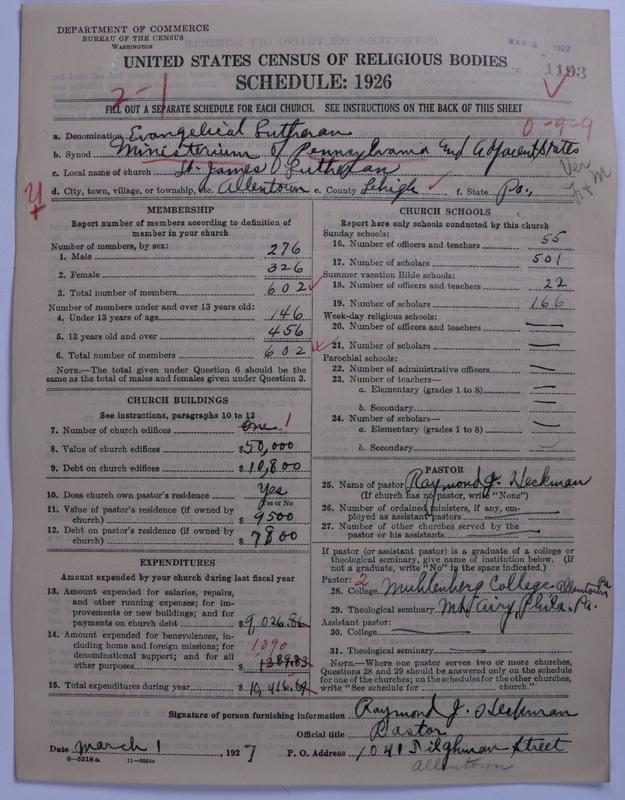 DEPARTMENT OF COMMERCE
BUREAU OF THE CENSUS
WASHINGTON
1193
UNITED STATES CENSUS OF RELIGIOUS BODIES
SCHEDULE: 1926
2-1
FILL OUT A SEPARATE SCHEDULE FOR EACH CHURCH. SEE INSTRUCTIONS ON THE BACK OF THIS SHEET
0-9-9
a. Denomination Evangelical Lutheran
b. Synod Ministerium of Pennsylvania and Adjacent States
c. Local name of church St. James Lutheran
Ver
d. City, town, village, or township, etc. Allentown e. County Lehigh f. State Pa.,
MEMBERSHIP
Report number of members according to definition of member in your church
Number of members, by sex:
1. Male 276
2. Female 326
3. Total number of members 602
Number of members under and over 13 years old:
4. Under 13 years of age 146
5. 13 years old and over 456
6. Total number of members 602
NOTE.—The total given under Question 6 should be the same as the total of males and females given under Question 3.
CHURCH BUILDINGS
See instructions, paragraphs 10 to 12
7. Number of church edifices One 1
8. Value of church edifices $50,000
9. Debt on church edifices $10,800
10. Does church own pastor's residence Yes
Yes or No
11. Value of pastor's residence (if owned by church) $9500
12. Debt on pastor's residence (if owned by church) $7800
EXPENDITURES
Amount expended by your church during last fiscal year
13. Amount expended for salaries, repairs, and other running expenses; for improvements or new buildings; and for payments on church debt $9,026.86
14. Amount expended for benevolences, including home and foreign missions; for denominational support; and for all other purposes 1390
$1389.83
15. Total expenditures during year $10,416.69
CHURCH SCHOOLS
Report here only schools conducted by this church
Sunday schools:
16. Number of officers and teachers 55
17. Number of scholars 501
Summer vacation Bible schools:
18. Number of officers and teachers 22
19. Number of scholars 166
Week-day religious schools:
20. Number of officers and teachers —
21. Number of scholars —
Parochial schools:
22. Number of administrative officers —
23. Number of teachers—
a. Elementary (grades 1 to 8) —
b. Secondary —
24. Number of scholars—
a. Elementary (grades 1 to 8) —
b. Secondary —
PASTOR
25. Name of pastor Raymond J. Heckman
(If church has no pastor, write "None")
26. Number of ordained ministers, if any, employed as assistant pastors —
27. Number of other churches served by the pastor or his assistants —
If pastor (or assistant pastor) is a graduate of a college or theological seminary, give name of institution below. (If not a graduate, write "No" in the space indicated.)
Pastor: 2
28. College Muhlenberg College Allentown Pa.
29. Theological seminary Mt. Airy, Phila. Pa.
Assistant pastor:
30. College —
31. Theological seminary —
NOTE.—Where one pastor serves two or more churches, Questions 28 and 29 should be answered only on the schedule for one of the churches; on the schedules for the other churches, write "See schedule for ........ church."
Signature of person furnishing information Raymond J. Heckman
Official title Pastor
Date March 1, 1927 P. O. Address 1041 Tilghman Street
8—5518a 11—9034a
Allentown